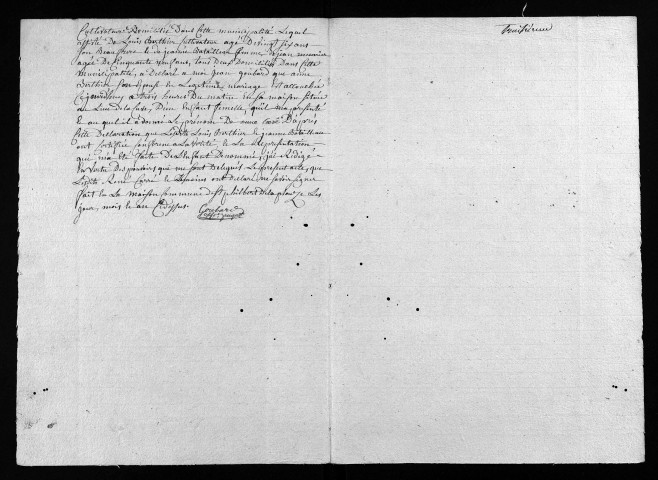 Cultivateur Domicilié Dans cette municipalité Lequel
assisté De Louis Berthier cultivateur agé De vingt six ans
son Beau frere et de jeanne Batailleau femme De jean
agée De Cinquante neuf ans, tous Deux Domiciliés Dans Cette
Municipalité, a Déclaré a moi jean goubard que anne
Berthier son Epouse En Legitime mariage Est accouchée
aujourd'huy a trois heures Du matin En sa maison située
au Lieu De la D'un Enfant femelle, qu'il m'a présenté
Et au quel il a donné Le prénom De anne D'après
Cette Declaration que Lesdits Louis Berthier Et jeanne Batailleau
ont Certifiée conforme a la vérité, Et La Représentation
qui m'a été faite De L'Enfant Denommé, j'ai Rédigé
En Vertu Des pouvoirs qui me sont Délegués Le présent acte, que
Lesdits René Et Les témoins ont déclaré ne savoir signer
fait En La maison Commune De St philbert Les
jour, mois Et an Cydessus
Goubard